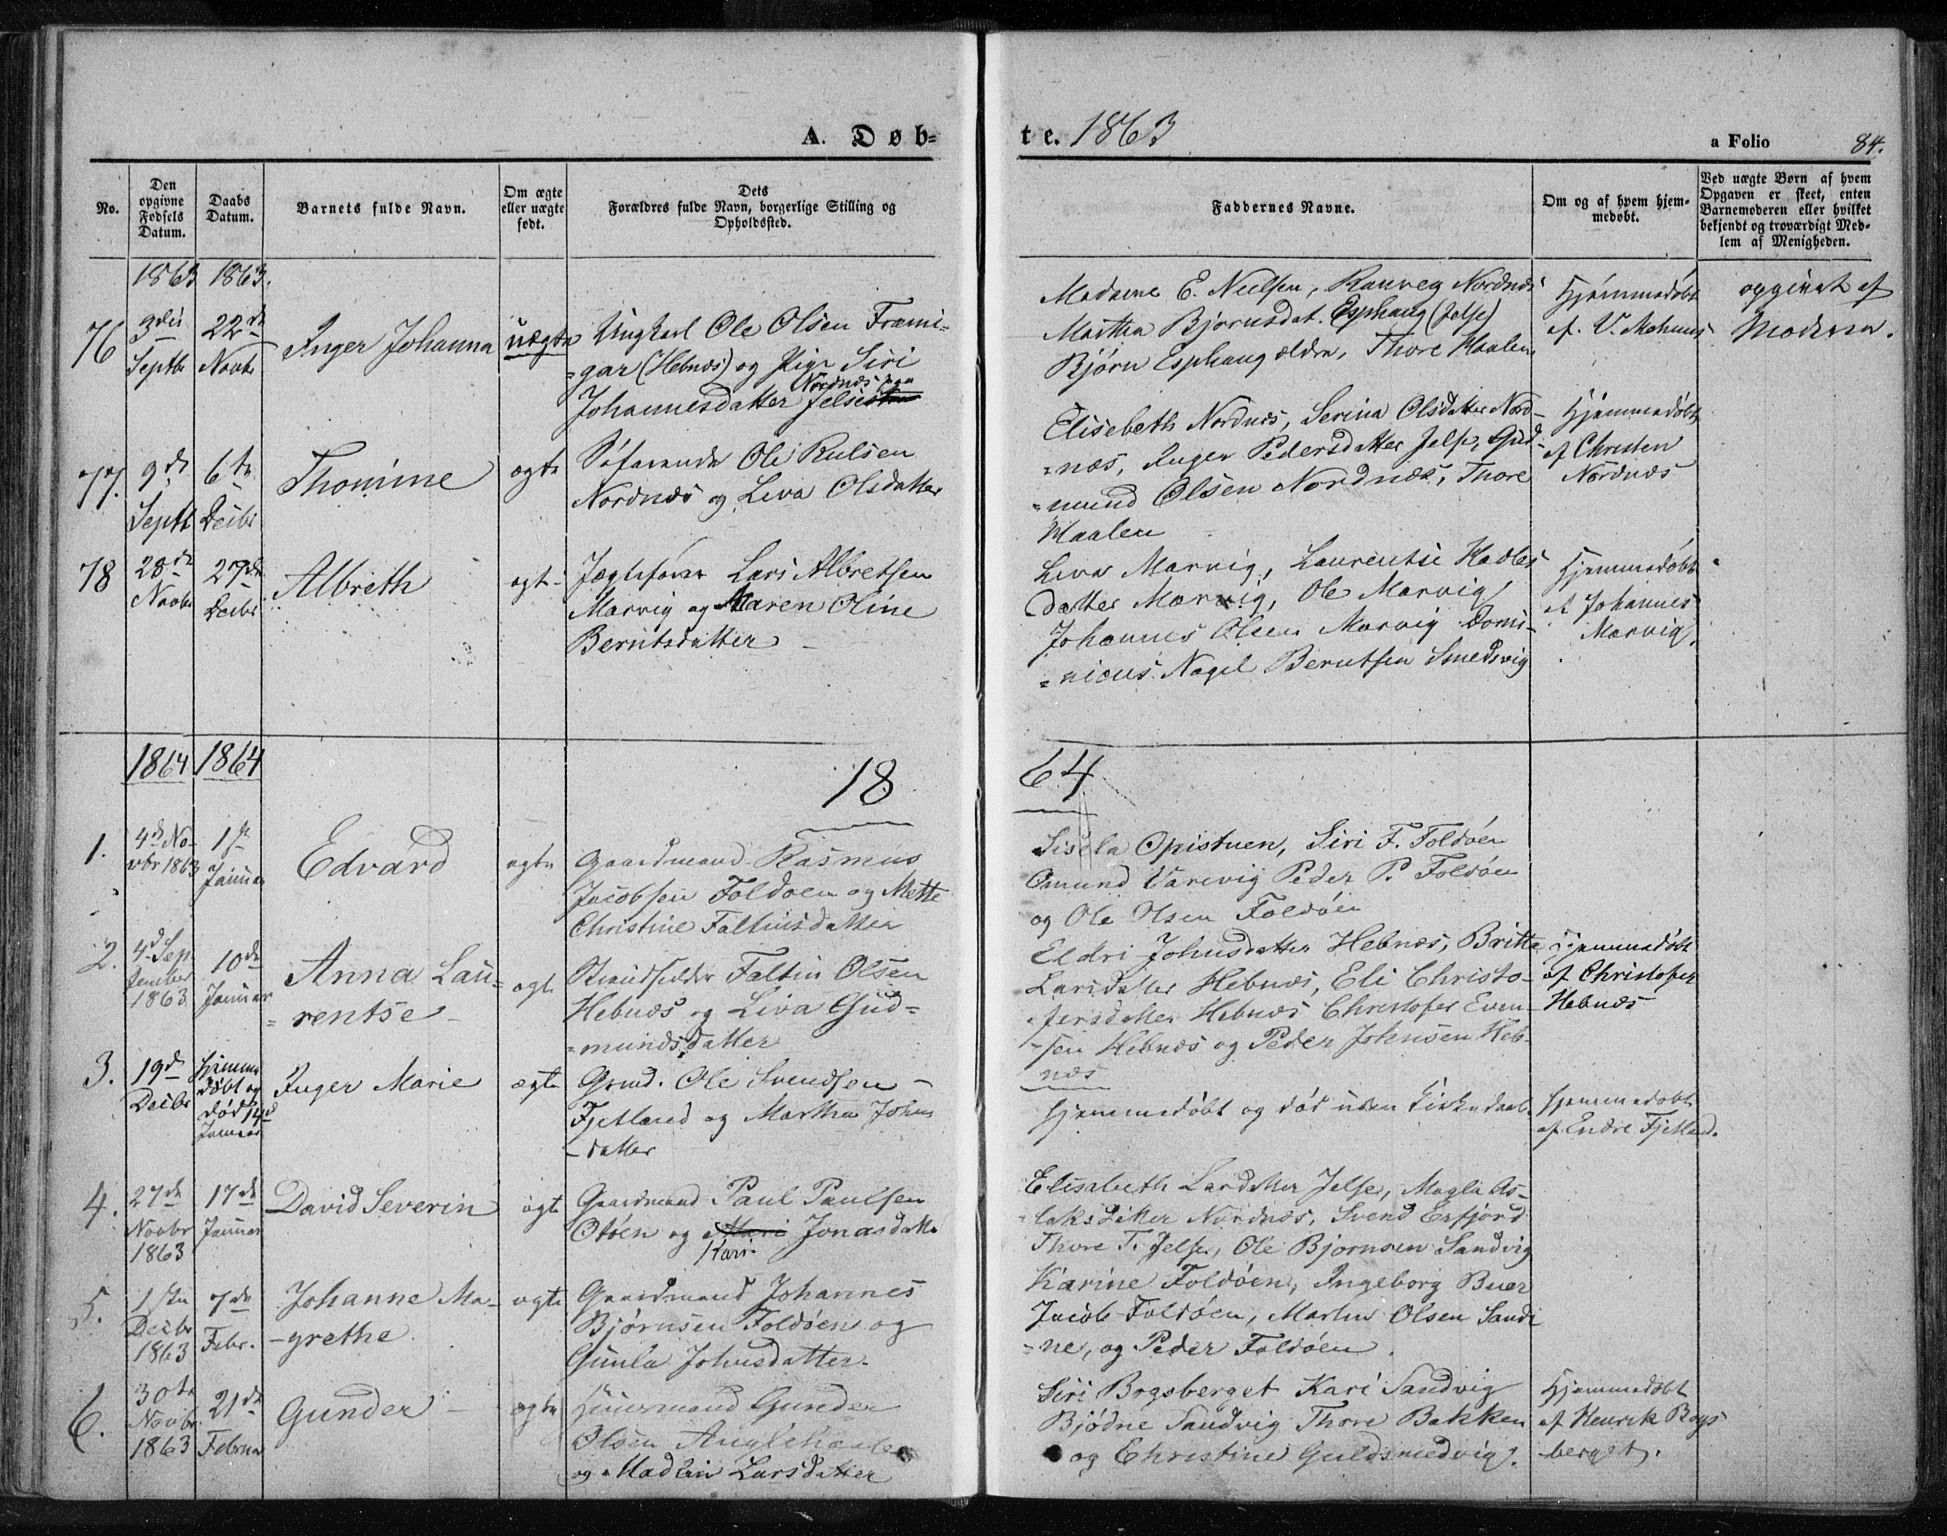 A. Døb-
te. 1863
a Folio 84.
No.
Den opgivne Fødsels Datum.
Daabs Datum.
Barnets fulde Navn.
Om ægte eller uægte født.
Dets Forældres fulde Navn, borgerlige Stilling og Opholdssted.
Faddernes Navne.
Om og af hvem hjem-
medøbt.
Ved uægte Børn af hvem
Opgaven er skeet, enten
Barnemoderen eller hvilket
bekjendt og troværdigt Med-
lem af Menigheden.
1863 1863.
76
3die
Septbr
22de
Novbr
Inger Johanna
uægte
Ungkarl Ole Olsen
gar (Hebnæs) og Pige Siri
Johannesdatter Nordnæs Jelse
Madame E. Nielsen, Ranveg Nordnæs
Martha Bjørnsdat. Esphaug (Jelse)
Bjørn Esphaug ældre, Thore Haalen
Hjemmedøbt
af
opgivet af
Moderen.
77.
9de
Septbr
6te
Decbr
Thomine
ægte
Søfarende Ole Rulsen
Nordnæs og Liva Olsdatter
Elisebeth Nordnæs, Serina Olsdatter Nord-
=næs, Inger Pedersdatter Jelse, Gud-
=mund Olsen Nordnæs, Thore
Haalen
Hjemmedøbt
af Christen
Nordnæs
78
28de
Novbr
27de
Decbr
Albreth
ægte
Jægtefører Lars Albretsen
Marvig og Maren Oline
Berntsdatter
Liva Marvig, Laurentse
datter Marvig, Ole Marvig
Johannes Olsen Marvig Domi-
=nicus Nagel Berntsen Smedsvig
Hjemmedøbt
af Johannes
Marvig.
1864 1864
18
64
1.
4de No-
vbr 1863
1ste
Januar
Edvard
ægte
Gaardmand Rasmus
Jacobsen Foldøen og Mette
Christine Faltinsdatter
Sisela Opistuen, Siri F. Foldøen
Omund Varevig Peder P. Foldøen
og Ole Olsen Foldøen
2.
4de Sep
tember
1863
10de
Januar
Anna Lau-
=rentse
ægte
Strandsidder Faltin Olsen
Hebnæs og Liva Gud=
=mundsdatter
Eldri Johnsdatter Hebnæs, Britta
Larsdatter Hebnæs, Eli Christo-
fersdatter Hebnæs Christofer Even-
-sen Hebnæs og Peder Johnsen Heb-
næs
Hjemmedøbt
af Christofer
Hebnæs
3.
19de
Decbr
Hjemme
døbt og
død 14de
Januar
Inger Marie
ægte
Grmd. Ole Svendsen -
Fjetland og Martha Johns
-datter
Hjemmedøbt og død uden Kirkedaab.
Hjemmedøbt
af Endre Fjetland.
4.
27de
Novbr
1863
17de
Januar
David Severin
ægte
Gaardmand Paul Paulsen
Otøen og Mari Jonasdatter
Kari
Elisabeth Larsdatter Jelse, Magla As-
laksdatter Nordnæs, Svend Erfjord
Thore T. Jelse, Ole Bjørnsen Sandvig
5.
1ste
Decbr
1863
7de
Febr.
Johanne Ma-
-grethe
ægte
Gaardmand Johannes
Bjørnsen Foldøen og
Gunla Johnsdatter.
Karine Foldøen, Ingeborg Buer
Jacob Foldøen, Martin Olsen Sandi
=ne, og Peder Foldøen.
6.
30te
Novbr
1863
21de
Februar
Gunder
ægte
Huusmand Gunder
Olsen
og Madlin Larsdatter
Siri Bogsberget Kari Sandvig
Bjødne Sandvig Thore Bakken
og Christine Guldsmedvig.
Hjemmedøbt
af Henrik Bogs
berget.